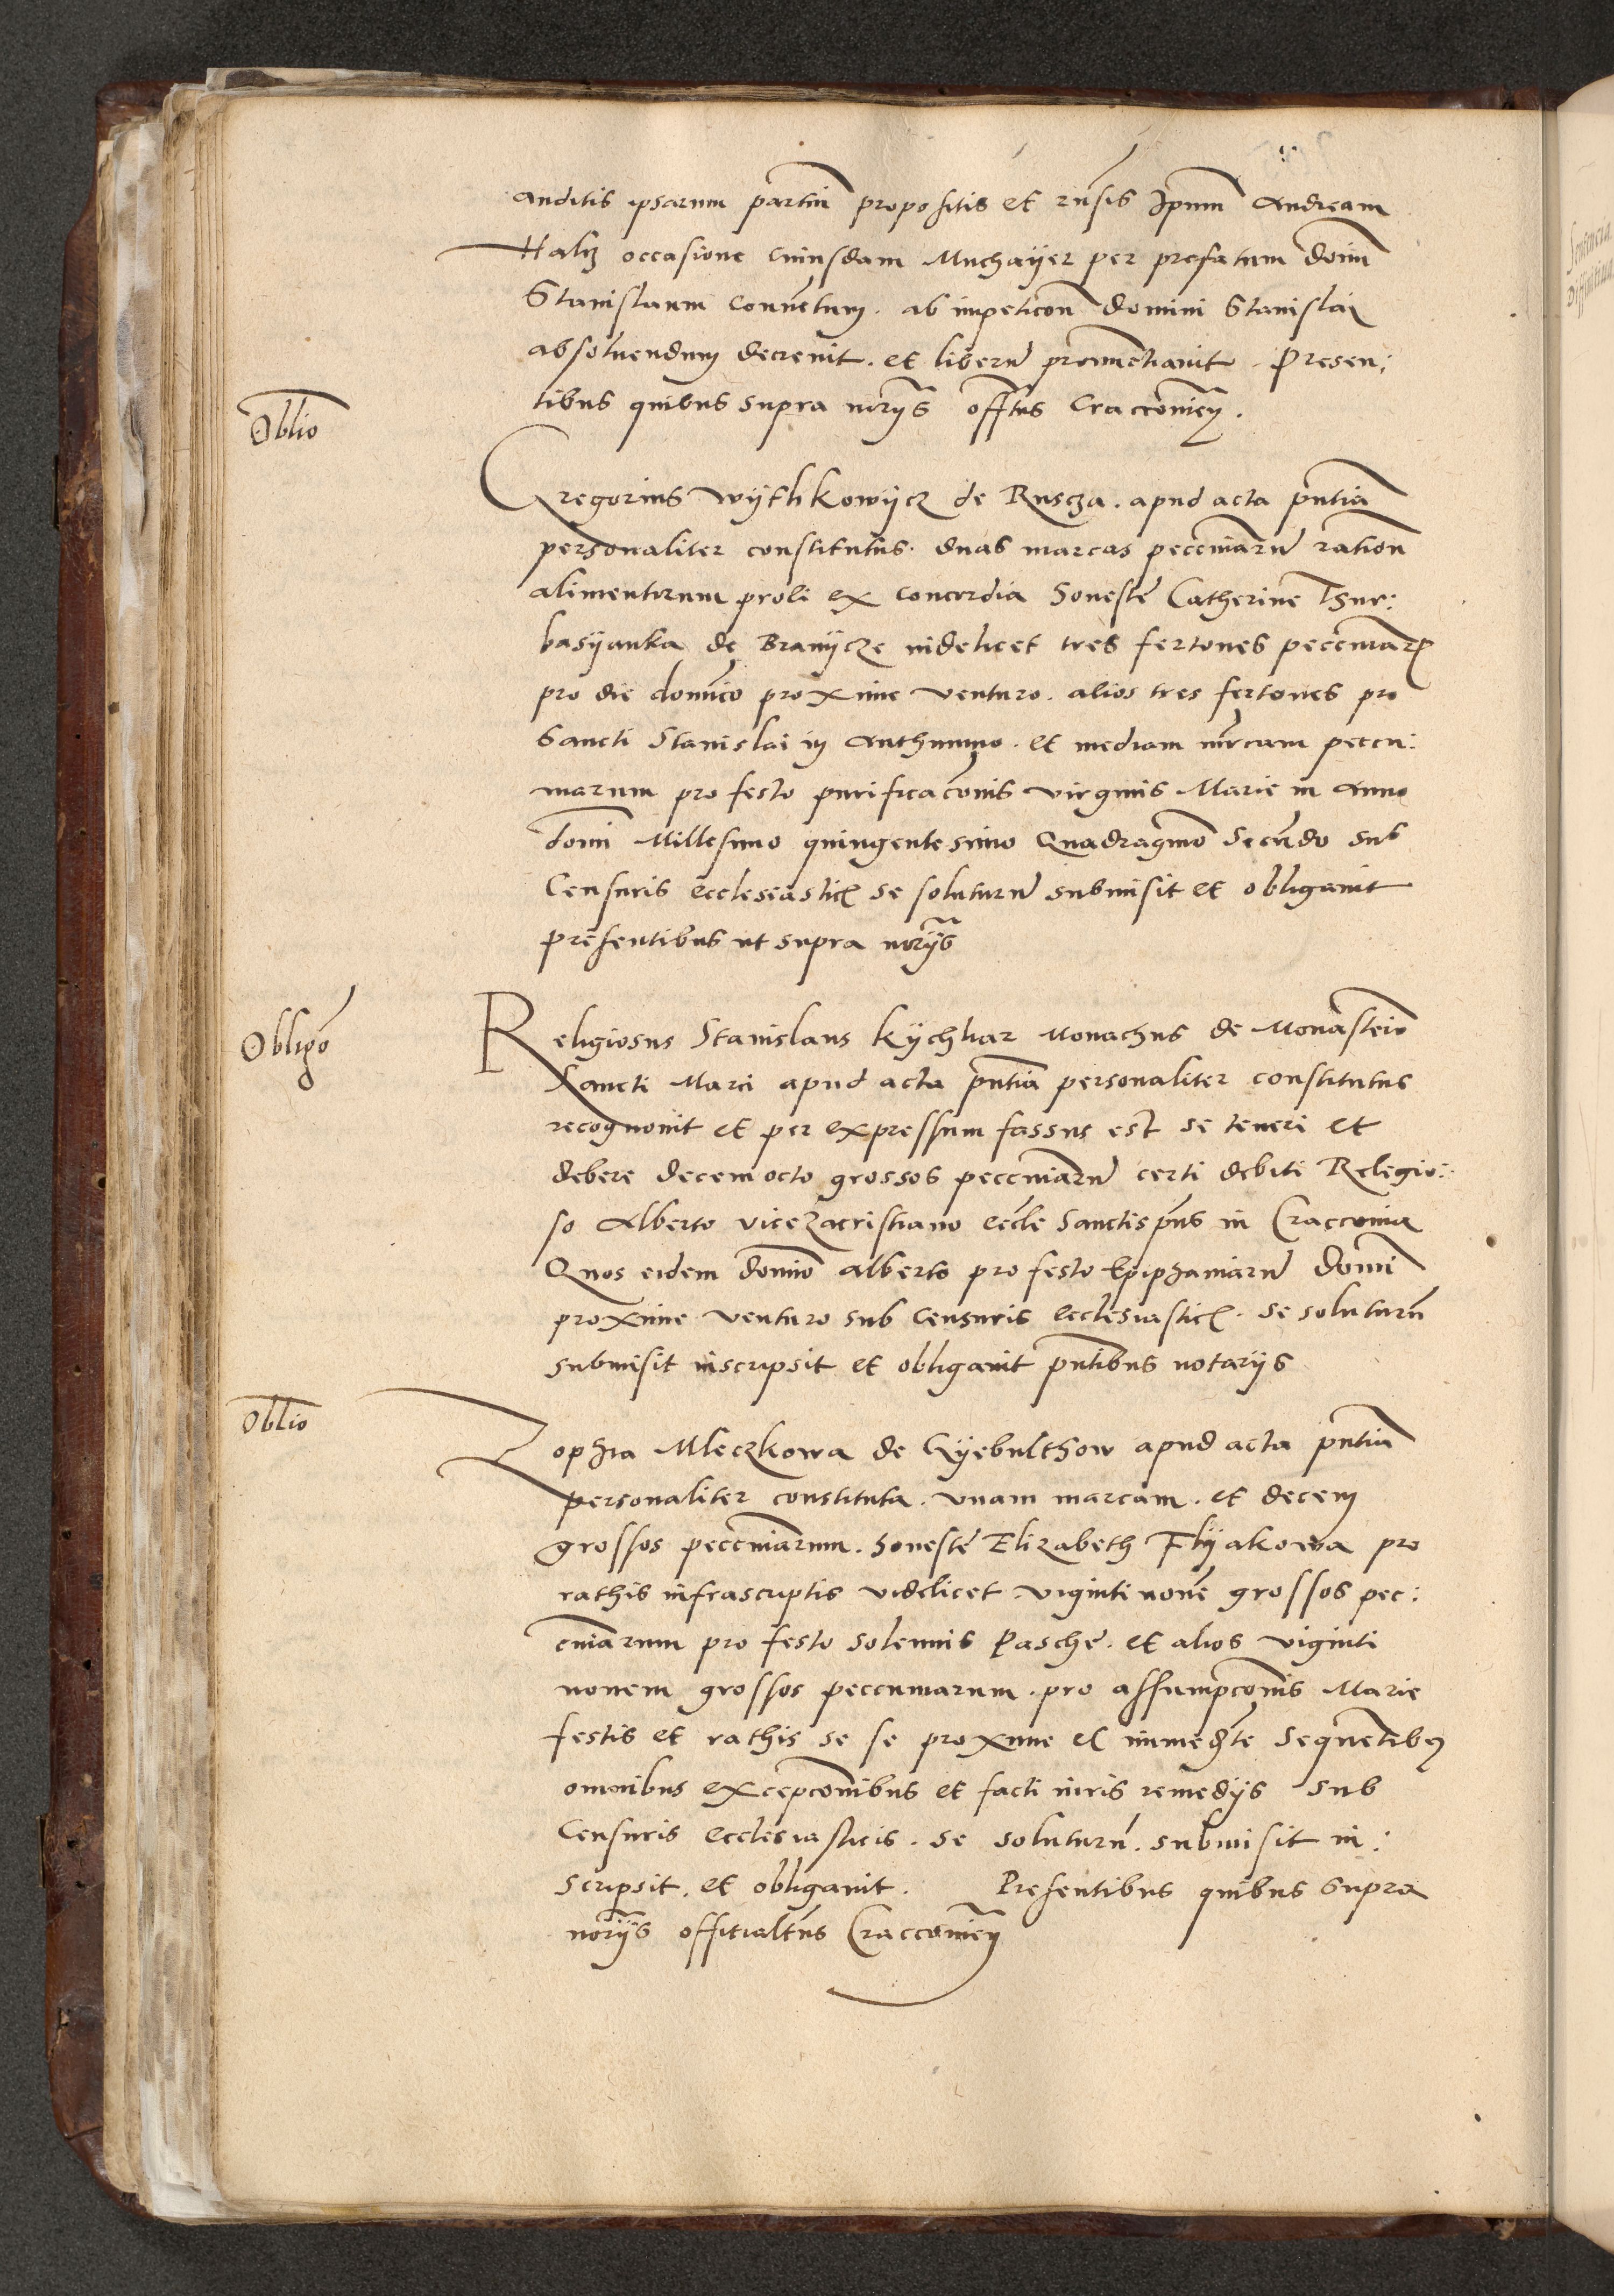 auditis ipsarum partiu propositis et rnsis Ipum Andream
Halz occasione cuiusdam Muchayer per prefatum Dom
Stanislaum conuetum. ab impeticon domini Stanislai
absoluendum decreuit. et liberu pronunctiauit. Presen:
tibus quibus supra noryis offitus Cracconien.
Oblio
Gregorius Wythkowycz de Ruscza. apud acta pntia
personaliter constitutus. duas marcas peccuniaru ration
alimentorum proli ex concordia honeste Catherine
basyanka de Branycze videlicet tres fertones peccuniaru
pro die domico proxime venturo. alios tres fertones pro
Sancti Stanislai in Authumno. et mediam mrcam peccu:
niarum pro festo purificaconis virginis Marie in anno
domi Millesimo quingentesimo Quadragmo Secudo sub
Censuris ecclesiastic se soluturu submisit et obligauit
presentibus ut supra noryis
Obligo
Religiosus Stanislaus Kychlar Monachus de Monasteio
Sancti Marci apud acta pntia personaliter constitutus
recognouit et per expressum fassus est se teneri et
debere decemocto grossos peccuniaru certi debiti Relegio:
so Alberto viceZacristiano eccle Sanctispus in Cracconia
Quos eidem domio alberto pro festo Epiphaniaru Domi
proxime venturo sub censuris ecclesiastic. se soluturu
submisit inscripsit et obligauit pntibus notaryis
Oblio
Zophia Mleczkowa de Gyebulthow apud acta pntia
personaliter constituta. vnam marcam. et decem
grossos peccuniarum. honeste Elizabeth Flyakowa pro
rathis infrascriptis videlicet viginti none grossos pec:
cuniarum pro festo solennis Pasche. et alios viginti
nonem grossos peccuniarum. pro assumpconis Marie
festis et rathis se se proxime et immedte sequetibus
omnibus excepconibus et facti iuris remedyis sub
Censuris ecclesiasticis. se soluturu. submisit in:
scripsit. et obligauit. Presentibus quibus supra
noryis offitialtus Cracconien